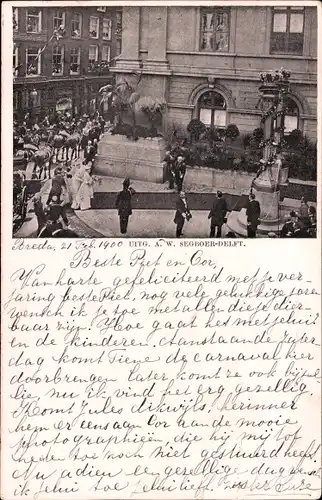 Breda, 21 Feb. 1900 UITG. A. W. SEGBOER-DELFT.
Beste Piet en Cor,
Van harte gefeliciteerd met je ver-
jaring beste Piet, nog vele gelukkige jaren
wensch ik je toe met allen die je dier-
baar zijn. Hoe gaat het met jelui
en de kinderen. Aanstaande Zater
dag komt Tiene de carnaval hier
doorbrengen later komt ze ook bij je
lie, nu ik vind het erg gezellig.
Komt Jules dikwijls, herinner
hem er eens aan Cor aan de mooie
photographieën, die hij mij tot
heden toe noch niet gestuurd heeft.
Nu adieu een gezellige dag
ik jelui toe je liefh.